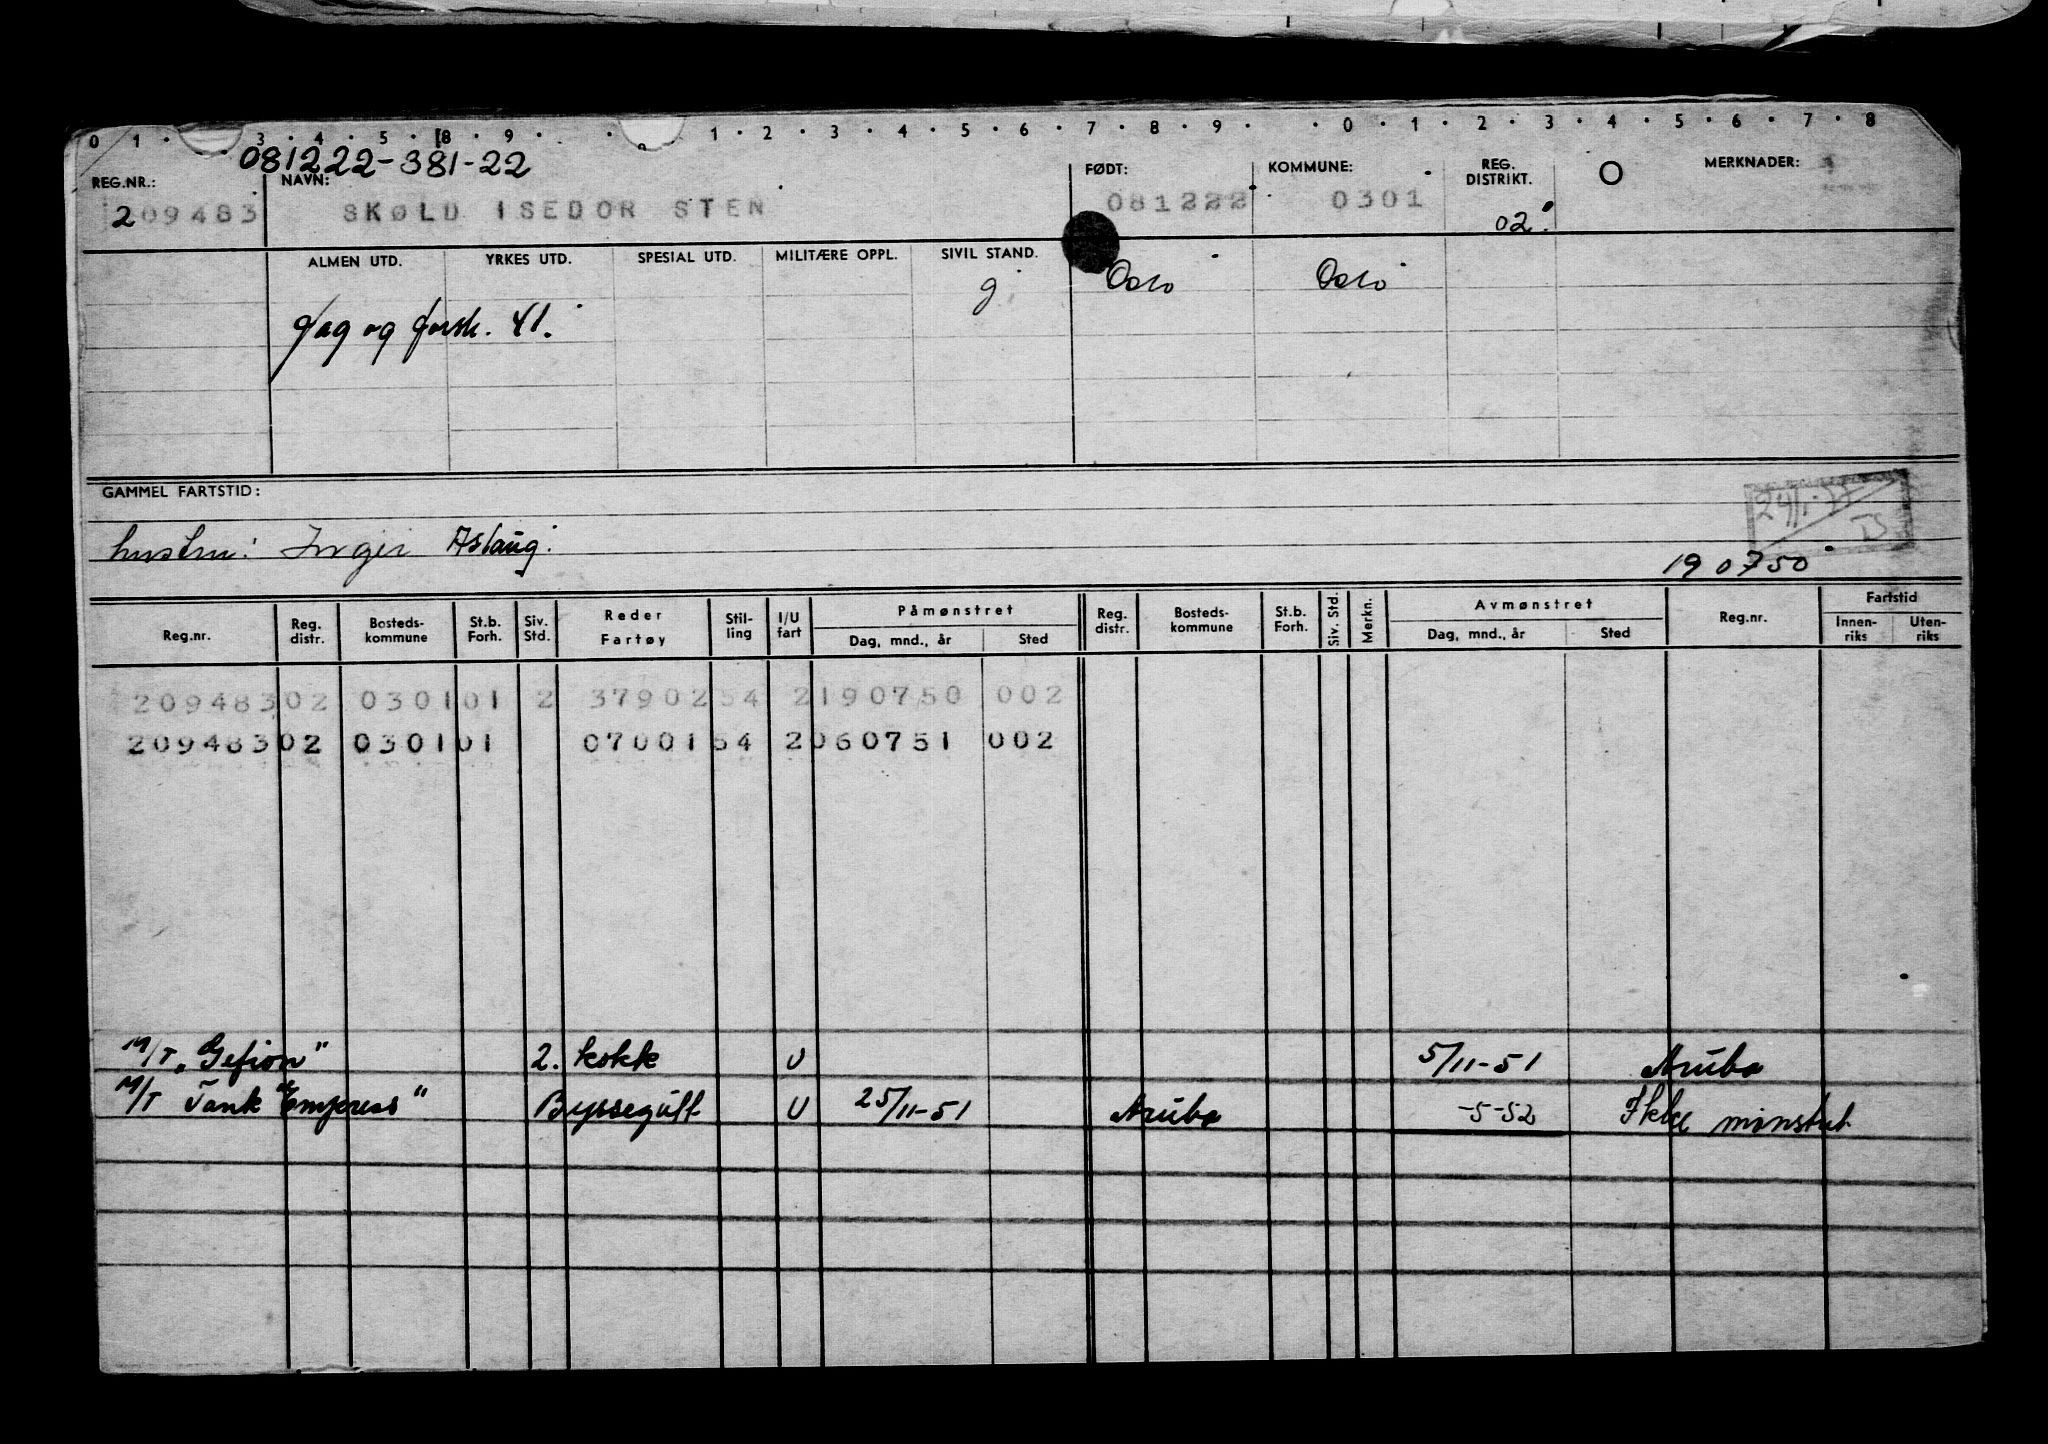 0 1 · · 3 · 4 · 5 · 8 · 9 · · 1 · 2 · 3 · 4 · 5 · 6 · 7 · 8 · 9 · · 0 · 1 · 2 · 3 · 4 · 5 · 6 · 7 · 8
081222-381-22
REG.NR.: NAVN: FØDT: KOMMUNE: REG. DISTRIKT. O MERKNADER:
209483 SKØLD ISEDOR STEN 081222 0301 02
ALMEN UTD. YRKES UTD. SPESIAL UTD. MILITÆRE OPPL. SIVIL STAND.
g Oslo Oslo
Fag og forsk. 41.
GAMMEL FARTSTID:
hustru: Inger Aslaug.
190750
Reg.nr. Reg. distr. Bosteds-kommune St.b. Forh. Siv. Std. Reder Fartøy Stil-ling I/U fart Påmønstret Dag, mnd., år Sted Reg. distr. Bosteds-kommune St.b. Forh. Siv. Std. Merkn. Avmønstret Dag, mnd., år Sted Reg.nr. Fartstid Innen-riks Uten-riks
209483 02 0301 01 2 37902 54 2 190750 002
209483 02 0301 01 07001 54 2 060751 002
M/T "Gefion" 2. kokk U 5/11-51 Aruba
M/T Tank "Empress" Byssegutt U 25/11-51 Aruba -5-52 Ikke mønstret